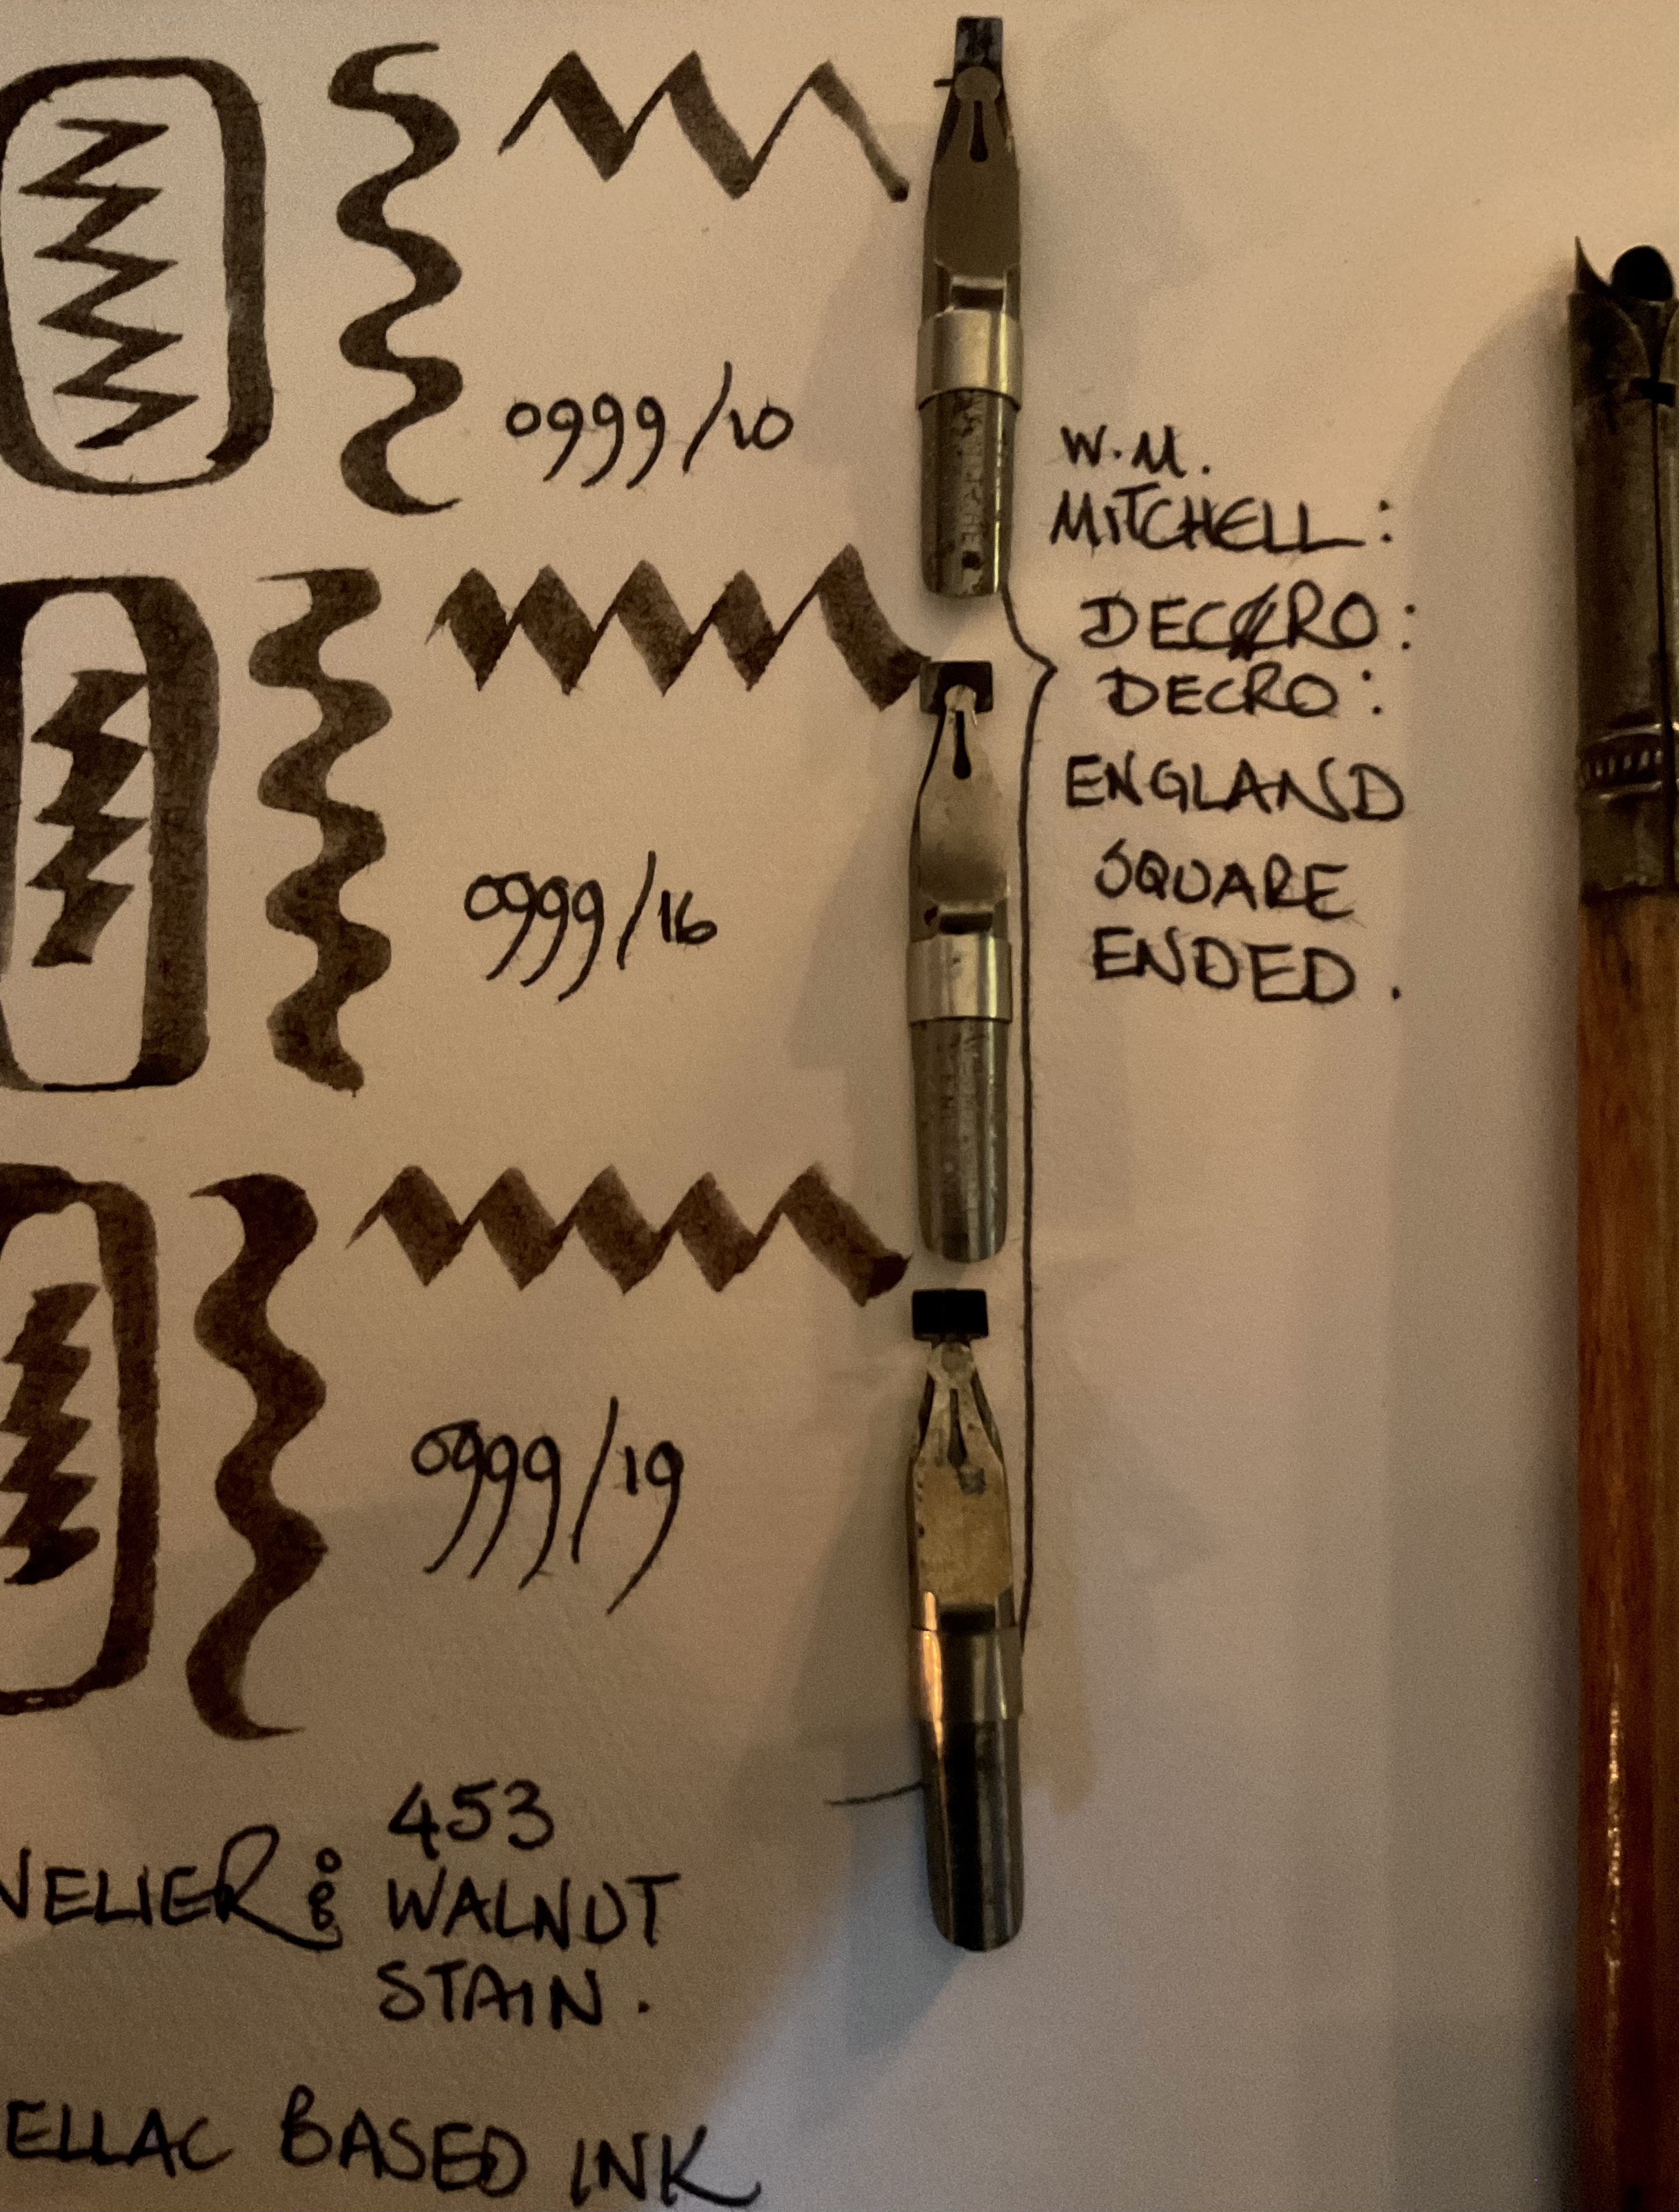 0999/10
W.M.
MITCHELL:
DECRO:
DECRO:
ENGLAND
SQUARE
ENDED.
0999/16
0999/19
453
NELIER: WALNUT
STAIN.
ELLAC BASED INK